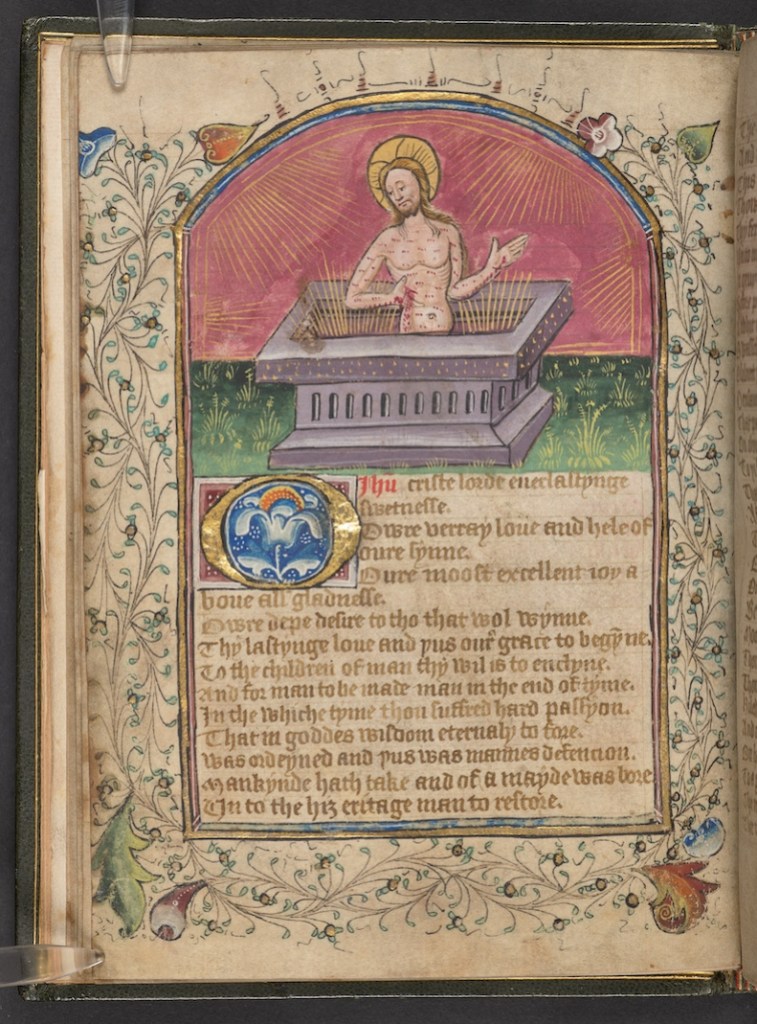 Ihu criste lorde euerlastynge
swetnesse.
Owre verray loue and hele of
oure synne.
Oure moost excellent ioy a
boue all gladnesse.
Owre depe desire to tho that wol wynne.
Thy lastynge loue and pus our grace to begynne.
To the children of man thy wil is to enclyne.
And for man to be made man in the end of tyme.
In the whiche tyme thou suffred hard passyon.
That in goddes wisdom eternaly to fore.
Was ordeyned and pus was mannes defencion.
Mankynde hath take and of a mayde was bore
Un to the hiz eritage man to restore.